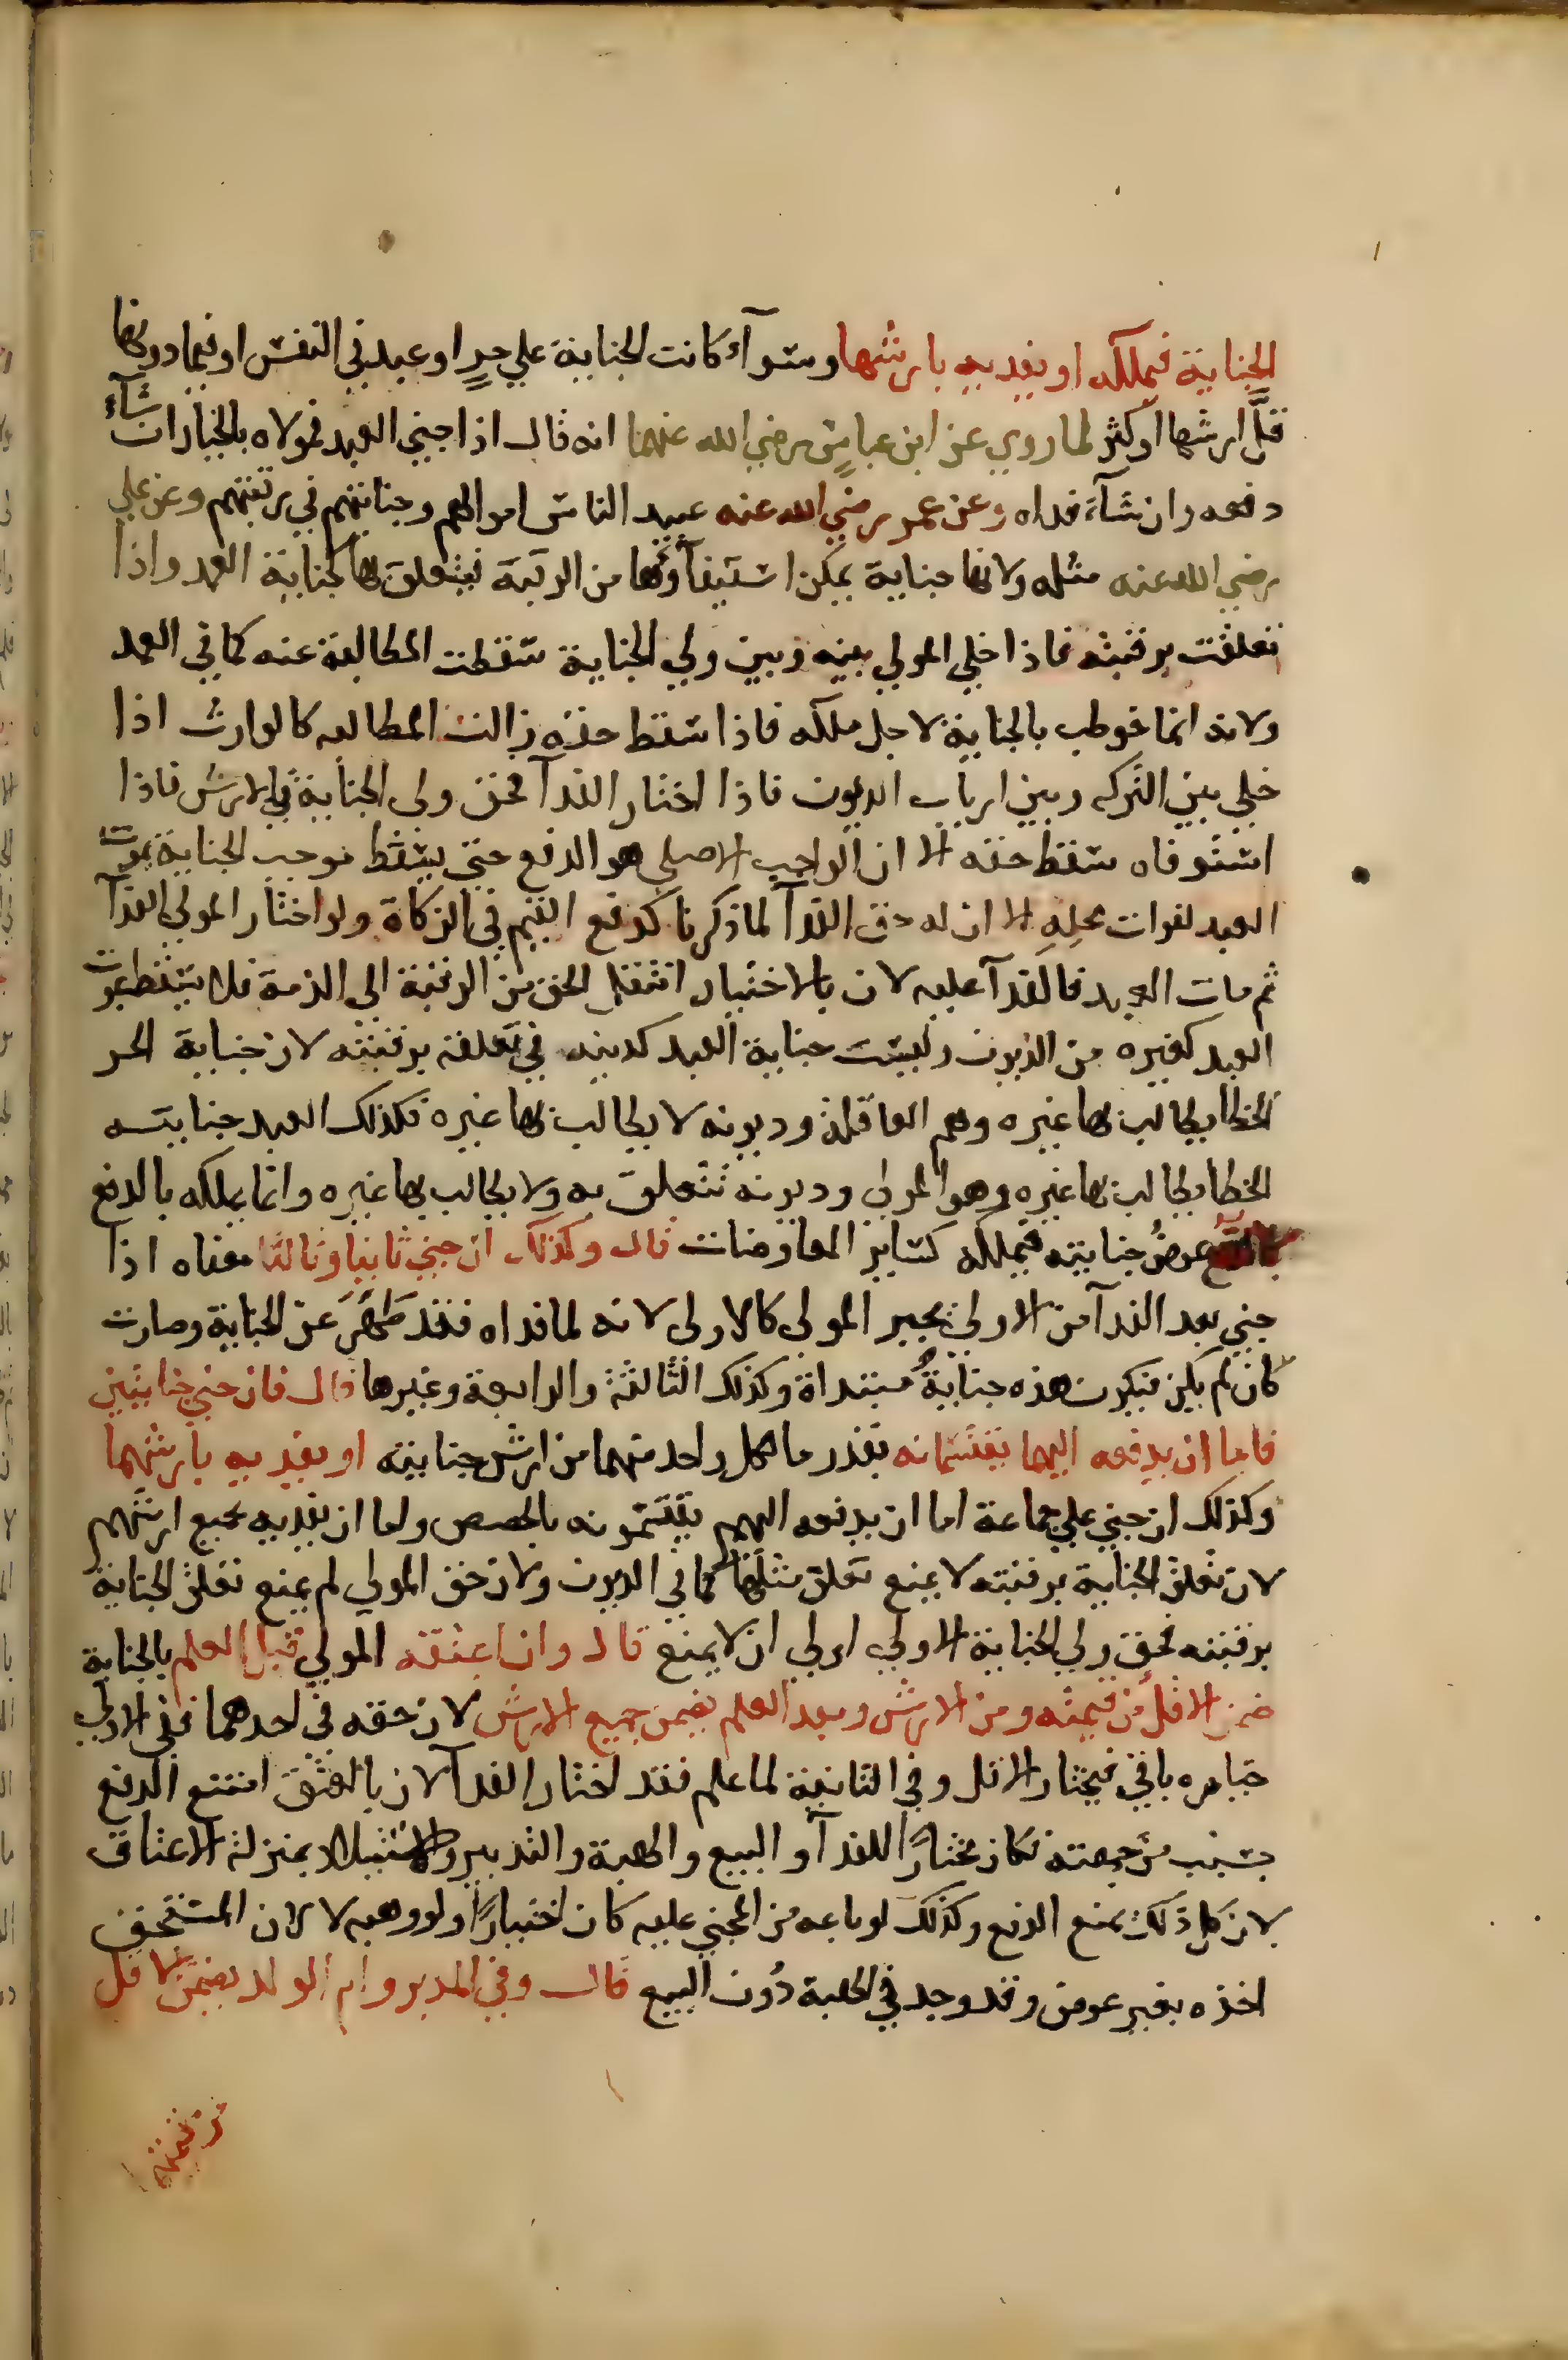 الجناية فيملكه او يفديه بارشها وسوآء كانت الجناية علي حرٍ او عبد في النفس او فيما دونها
قلَّ ارشها او كثر لما روي عن ابن عباسٍ رضي الله عنهما انه قال اذا جني العبد فمولاه بالخيار ان شآء
دفعه وان شآء فداه وعن عمر رضي الله عنه عبيد الناس اموالهم وجنايتهم في رقبتهم وعن علي
رضي الله عنه مثله ولانها جناية يمكن استيفآؤها من الرقبة فيتعلق بها كجناية العمد واذا
تعلقت برقبته فاذا خلي المولي بينه وبين ولي الجناية سقطت المطالبة عنه كما في العمد
ولانه انما خوطب بالجناية لاجل ملكه فاذا سقط حقه زالت المطالبه كالوارث اذا
خلي بين التركه وبين ارباب الديون فاذا اختار الفدآ فحق ولي الجناية في الارش فاذا
استوفاه سقط حقه الا ان الواجب الاصلي هو الدفع حتي يسقط موجب الجناية بموت
العبد لفوات محله الا ان له حق الفدآ لما ذكرنا كدفع القيم في الزكاة ولو اختار المولي الفدآ
ثم مات العبد فالفدآ عليه لان بالاختيار انتقل الحق من الرقبة الي الذمة فلا يسقط بموت
العبد كغيره من الديون وليست جناية العبد كدينه في تعلقه برقبته لان جناية الحر
الخطا يطالب بها غيره وهم العاقلة وديونه لا يطالب بها غيره فكذلك العبد جنايتـه
الخطا يطالب بها غيره وهو المولي وديونه تتعلق به ولا يطالب بها غيره وانما يملكه بالدفع
عوضُ جنايته فيملكه كساير المعاوضات قال وكذلك ان جني ثانيا وثالثا معناه اذا
جني بعد الفدآ من الاولي يخير المولي كالاولي لانه لما فداه فقد طَهُرَ عن الجناية وصارت
كان لم يكن فيكون هذه جنايةُ مبتداة وكذلك الثالثة والرابعة وغيرها قال فان جني جنايتين
فاما ان يدفعه اليهما يقتسمانه بقدر ما لكل واحد منهما من ارش جنايته او يفديه بارشهما
وكذلك ان جني علي جماعة اما ان يدفعه اليهم يقتسمونه بالحصص واما ان يفديه بجميع ارشهم
لان تعلق الجناية برقبته لا يمنع تعلق مثلها كما في الديون ولان حق المولي لم يمنع تعلق الجناية
برقبته فحق ولي الجناية الاولي اولي ان لا يمنع قال وان اعتقه المولي قبل العلم بالجناية
ضمن الاقل من قيمته ومن الارش وبعد العلم يضمن جميع الارش لان حقه في احدهما ففي الاولي
خياره باقٍ فيختار الاقل وفي الثانية لما علم فقد اختار الفدآ لان بالعتق امتنع الدفع
بسبب من جهته فكان مختارًا للفدآ و البيع والهبة والتدبير والاستيلاد بمنزلة الاعتاق
لان كل ذلك يمنع الدفع وكذلك لو باعه من المجني عليه كان اختيارًا ولو وهبه لا لان المستحق
اخذه بغير عوض وقد وجد في الهبة دُون البيع قال وفي المدبر وام الولد يضمن الاقل
من قيمتها